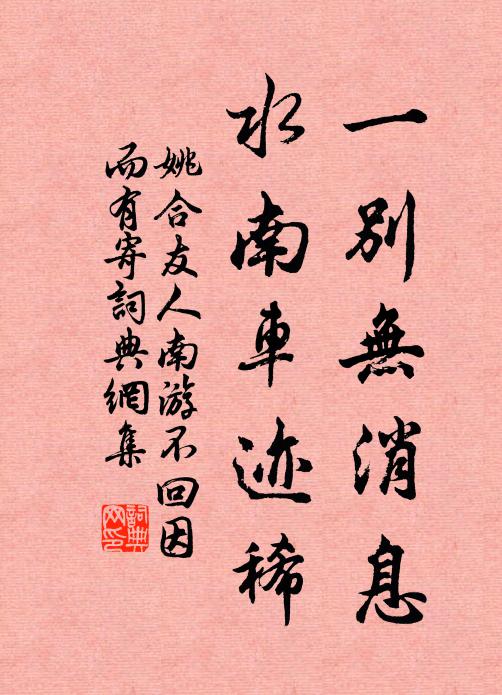 一别無消息
水南車迹稀
姚合友人南游不回因
而有寄詞典網集
詞典网印